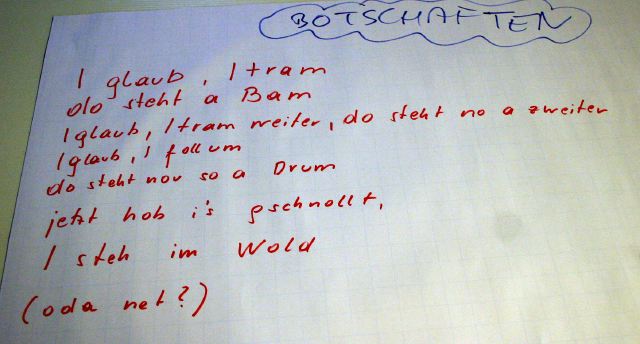 BOTSCHAFTEN
I glaub, I tram
do steht a Bam
I glaub, I tram weiter, do steht no a zweiter
I glaub, I foll um
do steht nou so a Drum
jetzt hob i's gschnollt,
I steh im Wold
(oda net?)